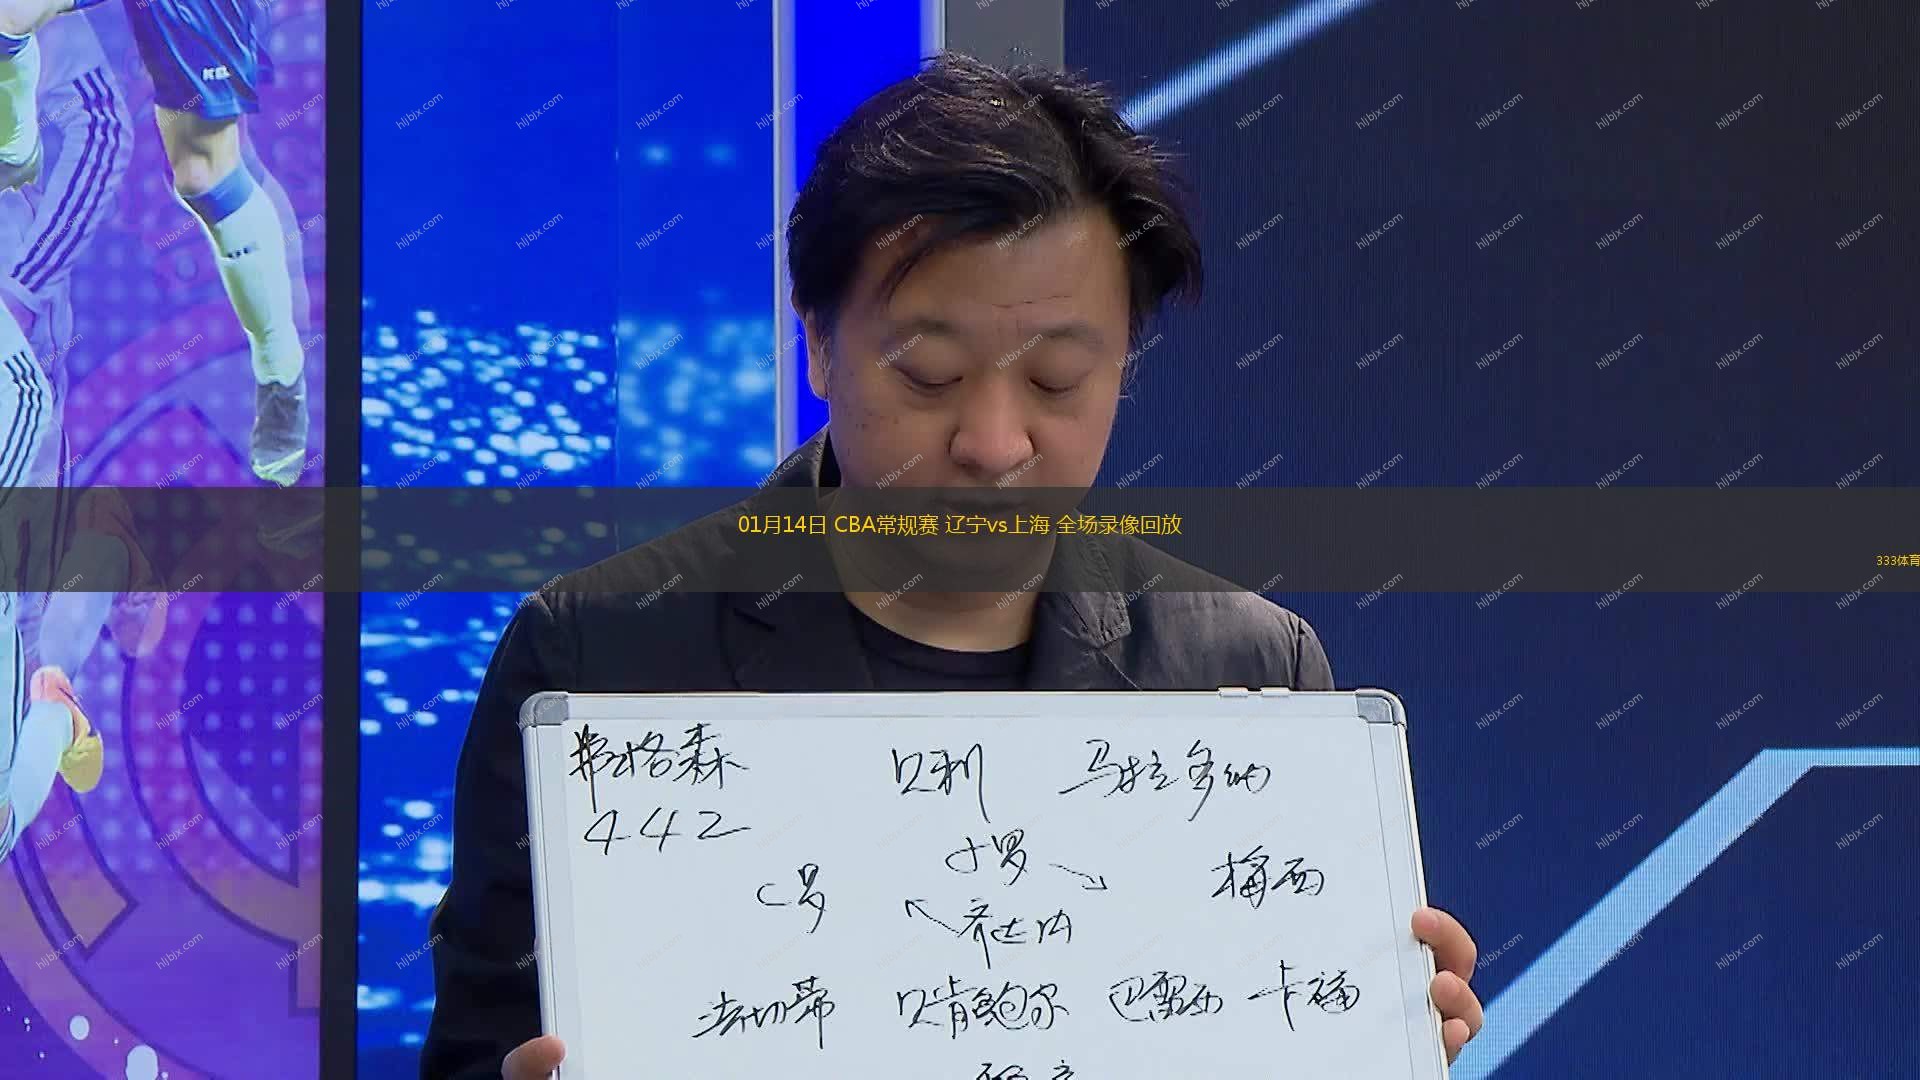 01月14日 CBA常规赛 辽宁vs上海 全场录像回放
333体育
hljbjx.com
KEL
弗格森 贝利 马拉多纳
442
小罗
C罗 梅西
齐达内
法切蒂 贝肯鲍尔 巴雷西 卡福